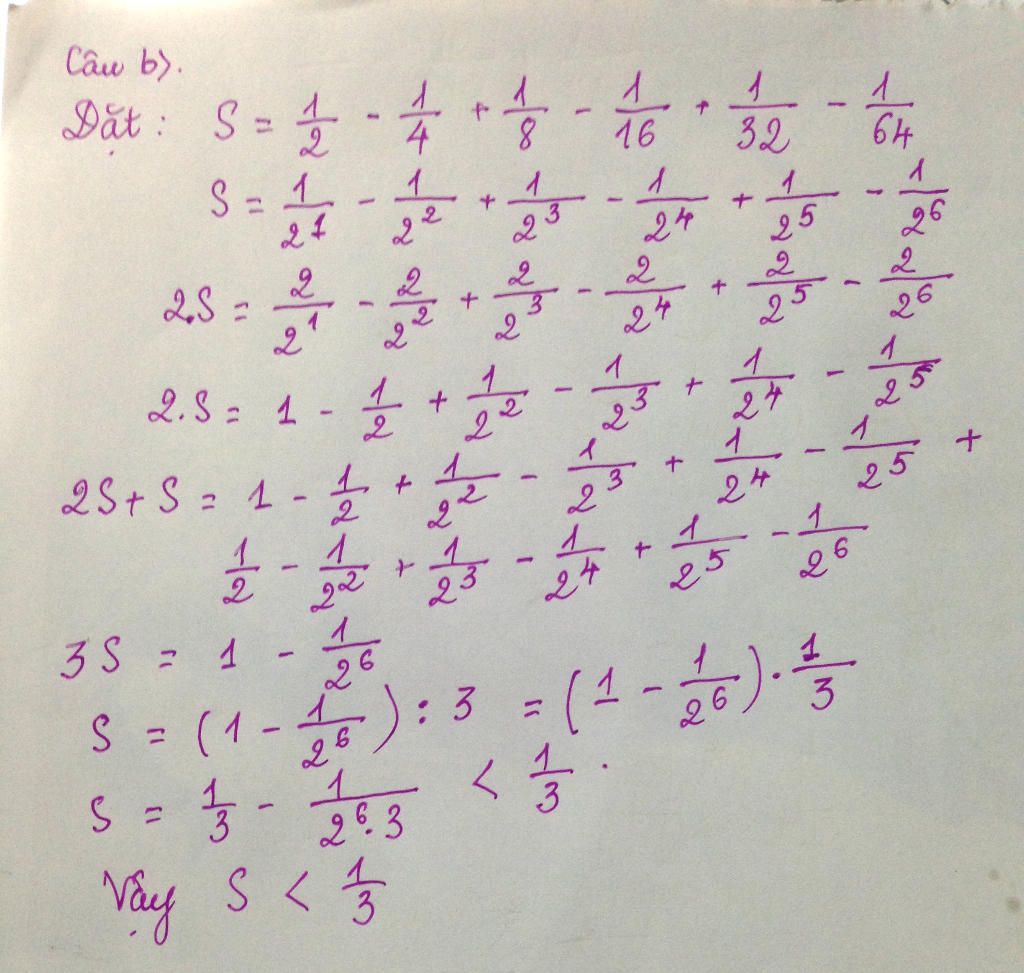 Câu b).
Đặt: S = 1/2 - 1/4 + 1/8 - 1/16 + 1/32 - 1/64
S = 1/2¹ - 1/2² + 1/2³ - 1/2⁴ + 1/2⁵ - 1/2⁶
2.S = 2/2¹ - 2/2² + 2/2³ - 2/2⁴ + 2/2⁵ - 2/2⁶
2.S = 1 - 1/2 + 1/2² - 1/2³ + 1/2⁴ - 1/2⁵
2S + S = 1 - 1/2 + 1/2² - 1/2³ + 1/2⁴ - 1/2⁵ +
1/2 - 1/2² + 1/2³ - 1/2⁴ + 1/2⁵ - 1/2⁶
3S = 1 - 1/2⁶
S = (1 - 1/2⁶) : 3 = (1 - 1/2⁶) . 1/3
S = 1/3 - 1/(2⁶.3) < 1/3 .
Vậy S < 1/3